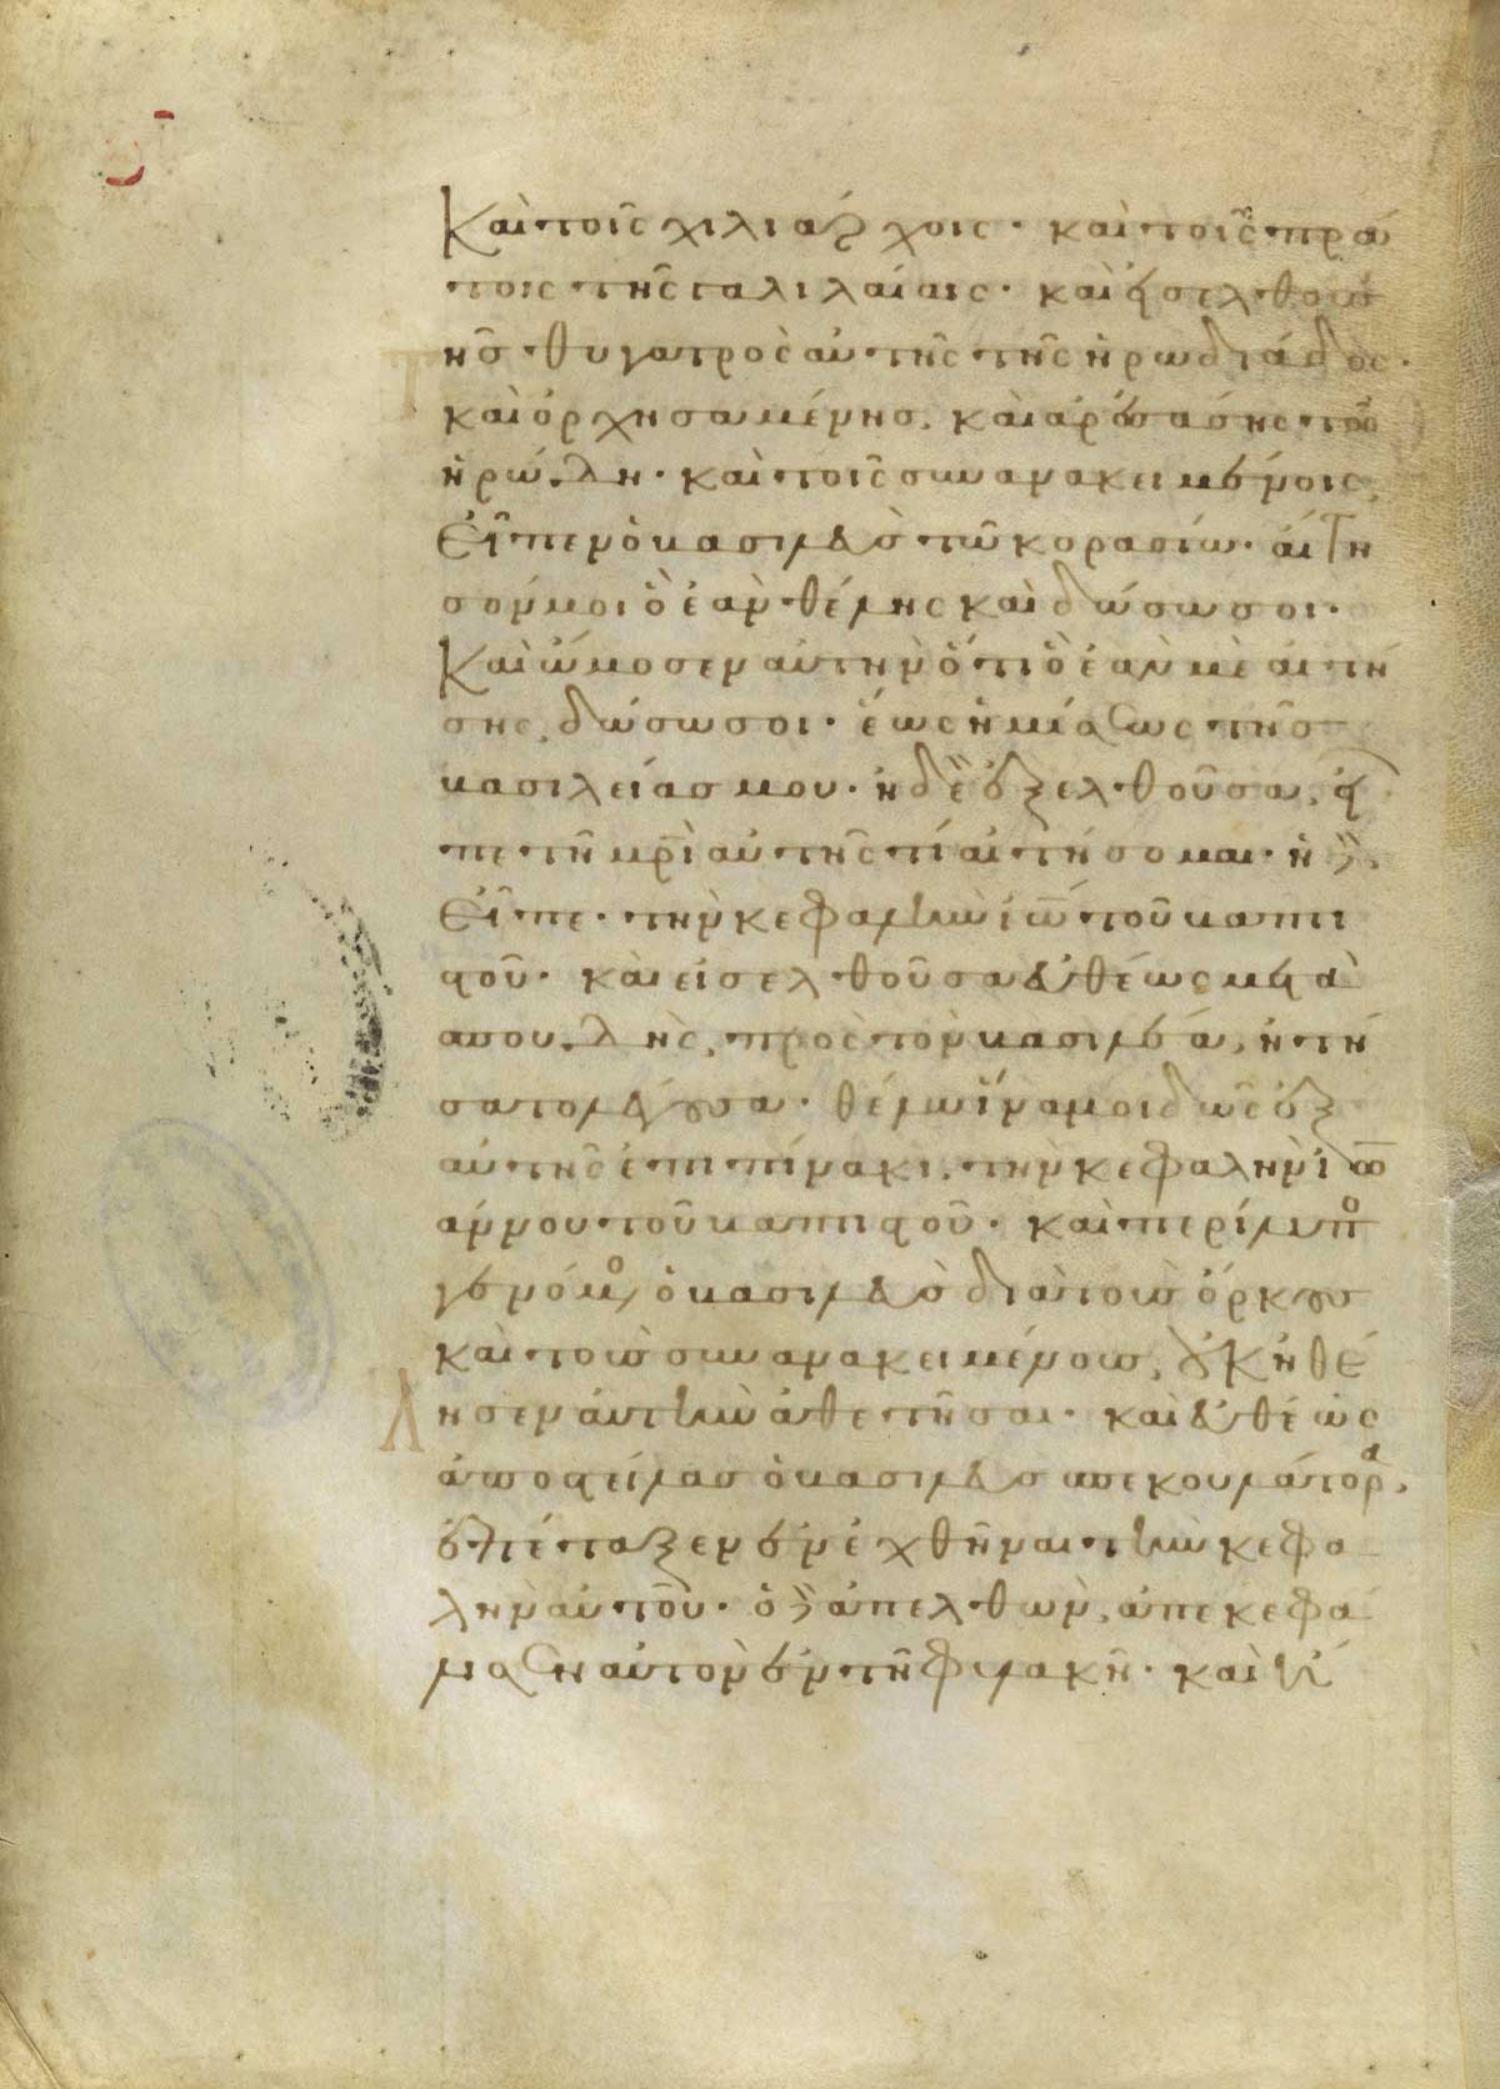 Καὶ τοῖς χιλιάρχοις· καὶ τοῖς πρώ
τοις τῆς γαλιλαίαις· καὶ εἰσελθούσ
ης θυγατρὸς αὐτῆς τῆς ἡρωδιάδος·
καὶ ὀρχησαμένης, καὶ ἀρεσάσης τοῦ
ἡρώδη· καὶ τοῖς συνανακειμένοις,
Εἶπεν ὁ βασιλεὺς τῶ κορασίω· αἴτη
σόν μοι ὃ ἐὰν θέλης καὶ δώσω σοι·
Καὶ ὤμοσεν αὐτὴν ὅτι ὃ ἐάν με αἰτή
σης, δώσω σοι· ἕως ἡμίσεως τῆς
βασιλείας μου· ἡ δὲ ἐξελθοῦσα, εἶ
πε τῆ μρὶ αὐτῆς τί αἰτήσομαι· ἡ δὲ
Εἶπε· τὴν κεφαλὴν ἰω τοῦ βαπτι
στοῦ· καὶ εἰσελθοῦσα εὐθέως μετὰ
σπουδῆς, πρὸς τὸν βασιλέα, ἠτή
σατο λέγουσα· θέλω ἵνα μοι δῶς ἐξ
αὐτῆς ἐπὶ πίνακι, τὴν κεφαλὴν ἰω
άννου τοῦ βαπτιστοῦ· καὶ περίλυπο
γενόμο ὁ βασιλεὺς διὰ τοὺς ὅρκους
καὶ τοὺς συνανακειμένους, οὐκ ἠθέ
λησεν αὐτὴν ἀθετῆσαι· καὶ εὐθέως
ἀποστείλας ὁ βασιλεὺς σπεκουλάτορα,
ἐπέταξεν ἐνεχθῆναι τὴν κεφα
λὴν αὐτοῦ· ὁ δὲ ἀπελθὼν, ἀπεκεφά
λισεν αὐτὸν ἐν τῆ φυλακῆ· καὶ ἤ